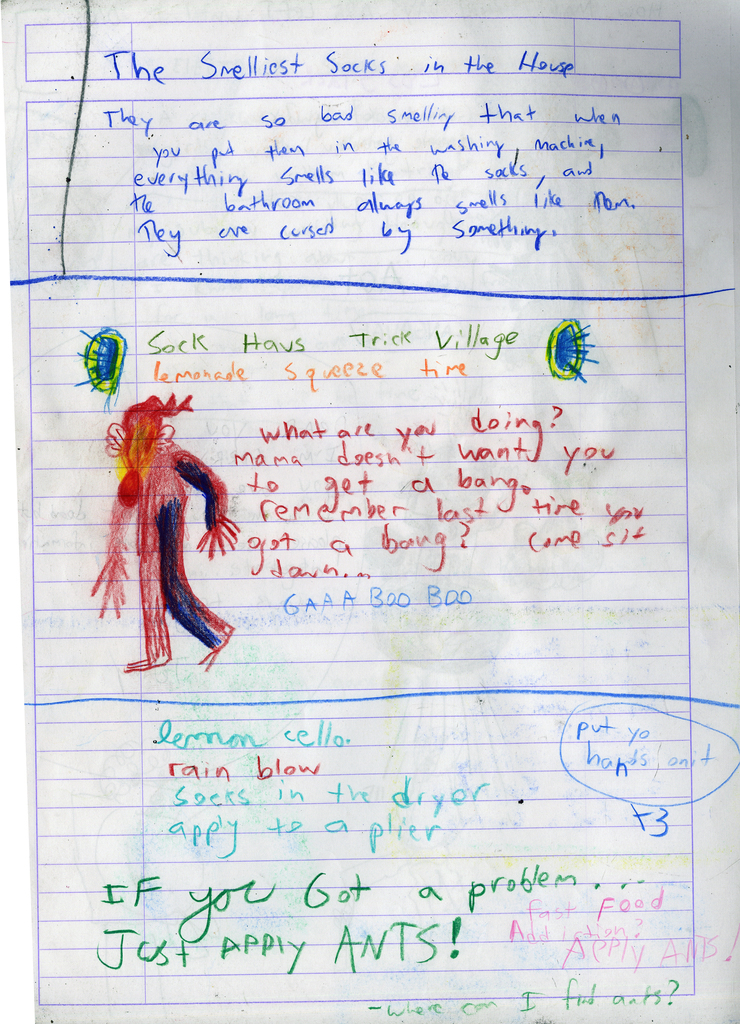 The Smelliest Socks in the House
They are so bad smelling that when
you put them in the washing, machine,
everything smells like the socks, and
the bathroom always smells like them.
They are cursed by something.
Sock Haus Trick Village
lemonade squeeze time
what are you doing?
mama doesn't want you
to get a bang.
remember last time you
got a bang? come sit
down...
GAAA BOO BOO
lemon cello.
rain blow
socks in the dryer
apply to a plier
put yo
hands on it
+3
IF you Got a problem....
Just APPLY ANTS!
Fast Food
Addiction?
APPLY ANTS!
-where can I find ants?